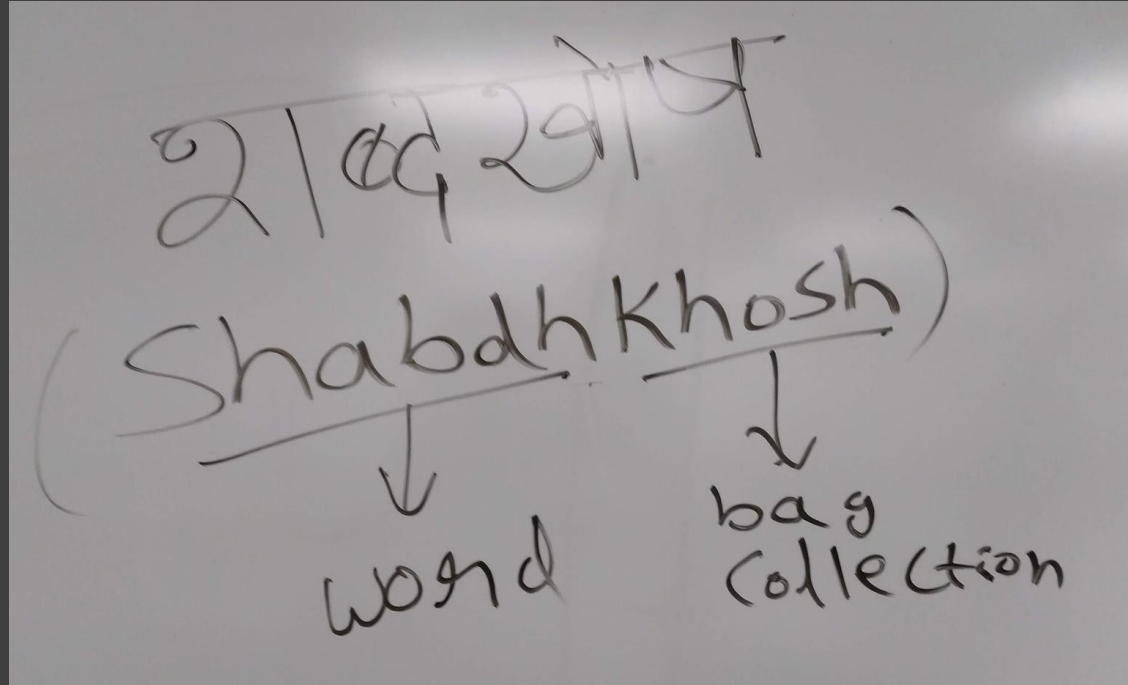 शब्दखोष
(Shabdh Khosh)
↓ ↓
word bag
Collection